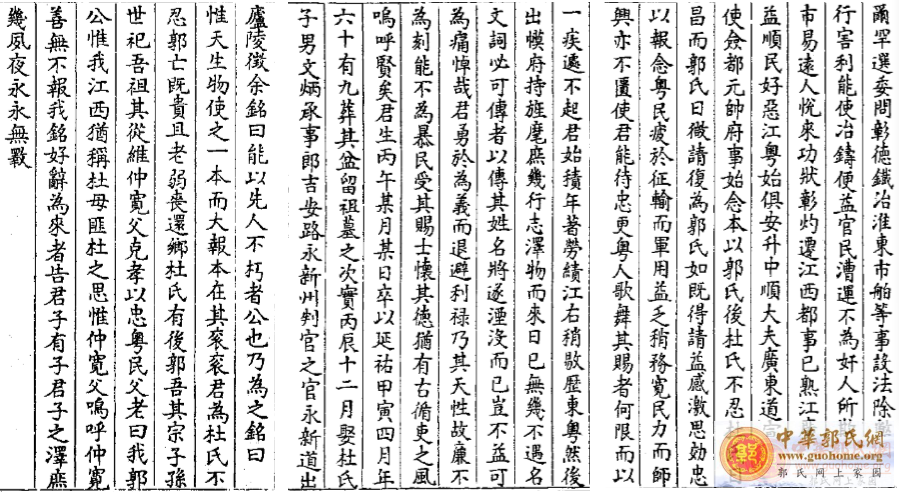 爾罕選委問彰德鐵冶淮東市舶等事設法除
行害利能使冶鑄便益官民漕運不為奸人所
市易遠人悅來功狀彰灼遷江西都事已熟江
益順民好惡江粵始俱安升中順大夫廣東道宣
使僉都元帥府事始念本以郭氏後杜氏不忍
昌而郭氏日徵請復為郭氏如既得請益感激思効忠
以報念粵民疲於征輸而軍用益乏稍務寬民力而師
興亦不匱使君能待忠更粵人歌舞其賜者何限而以
一疾遽不起君始積年著勞績江右稍敭歷東粵然後
出幙府持旌麾庶幾行志澤物而來日已無幾不遇名
文詞必可傳者以傳其姓名將遂湮沒而已豈不益可
為痛悼哉君勇於為義而退避利祿乃其天性故廉不
為刻能不為暴民受其賜士懷其德猶有古循吏之風
嗚呼賢矣君生丙午某月某日卒以延祐甲寅四月年
六十有九葬其盆留祖墓之次實丙辰十二月娶杜氏
子男文炳承事郎吉安路永新州判官之官永新道出
廬陵徵余銘曰能以先人不朽者公也乃為之銘曰
惟天生物使之一本而大報本在其衮衮君為杜氏不
忍郭亡既貴且老弱喪還鄉杜氏有後郭吾其宗子孫
世祀吾祖其從維仲寬父克孝以忠粵民父老曰我郭
公惟我江西猶稱杜母匪杜之思惟仲寬父嗚呼仲寬
善無不報我銘好辭為來者告君子有子君子之澤庶
幾夙夜永永無斁
中華郭氏網
www.guohome.org
郭氏網上家園